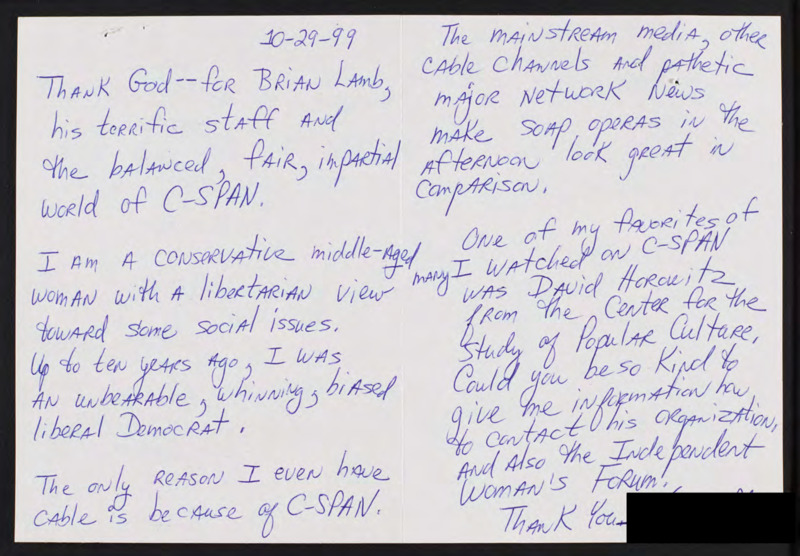 10-29-99
Thank God--for Brian Lamb,
his terrific staff and
the balanced, fair, impartial
world of C-SPAN.
I am a conservative middle-aged
woman with a libertarian view
toward some social issues.
Up to ten years ago, I was
an unbearable, whinning, biased
liberal Democrat.
The only reason I even have
cable is because of C-SPAN.
The mainstream media, other
cable channels and pathetic
major network news
make soap operas in the
afternoon look great in
comparison.
One of my favorites of
many I watched on C-SPAN
was David Horowitz
from the Center for the
Study of Popular Culture.
Could you be so kind to
give me information how
to contact his organization,
and also the Independent
Woman's Forum.
Thank You-